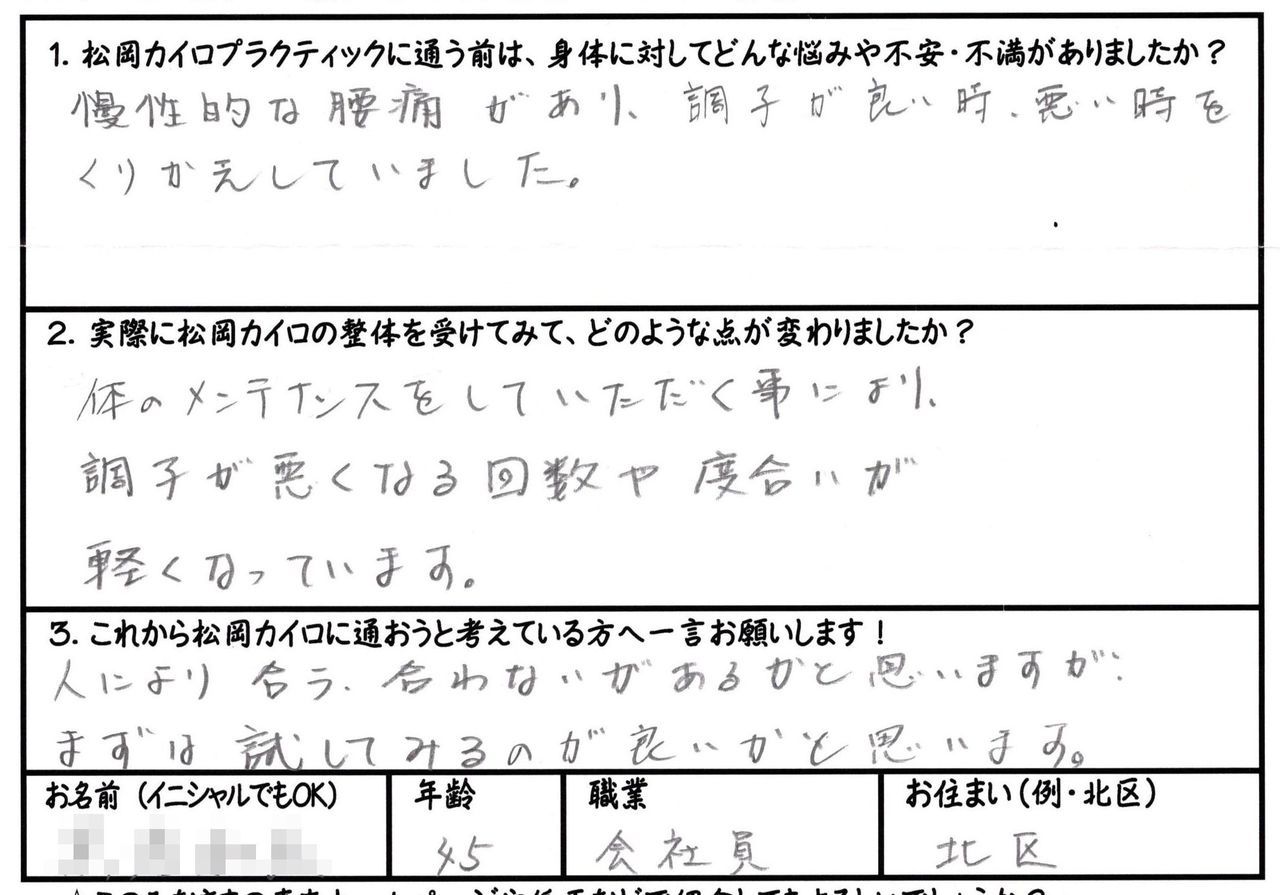 1. 松岡カイロプラクティックに通う前は、身体に対してどんな悩みや不安・不満がありましたか？
慢性的な腰痛があり、調子が良い時、悪い時を
くりかえしていました。
2. 実際に松岡カイロの整体を受けてみて、どのような点が変わりましたか？
体のメンテナンスをしていただく事により、
調子が悪くなる回数や度合いが
軽くなっています。
3. これから松岡カイロに通おうと考えている方へ一言お願いします！
人により合う、合わないがあるかと思いますが、
まずは試してみるのが良いかと思います。
お名前（イニシャルでもOK） 年齢 職業 お住まい（例・北区）
45 会社員 北区